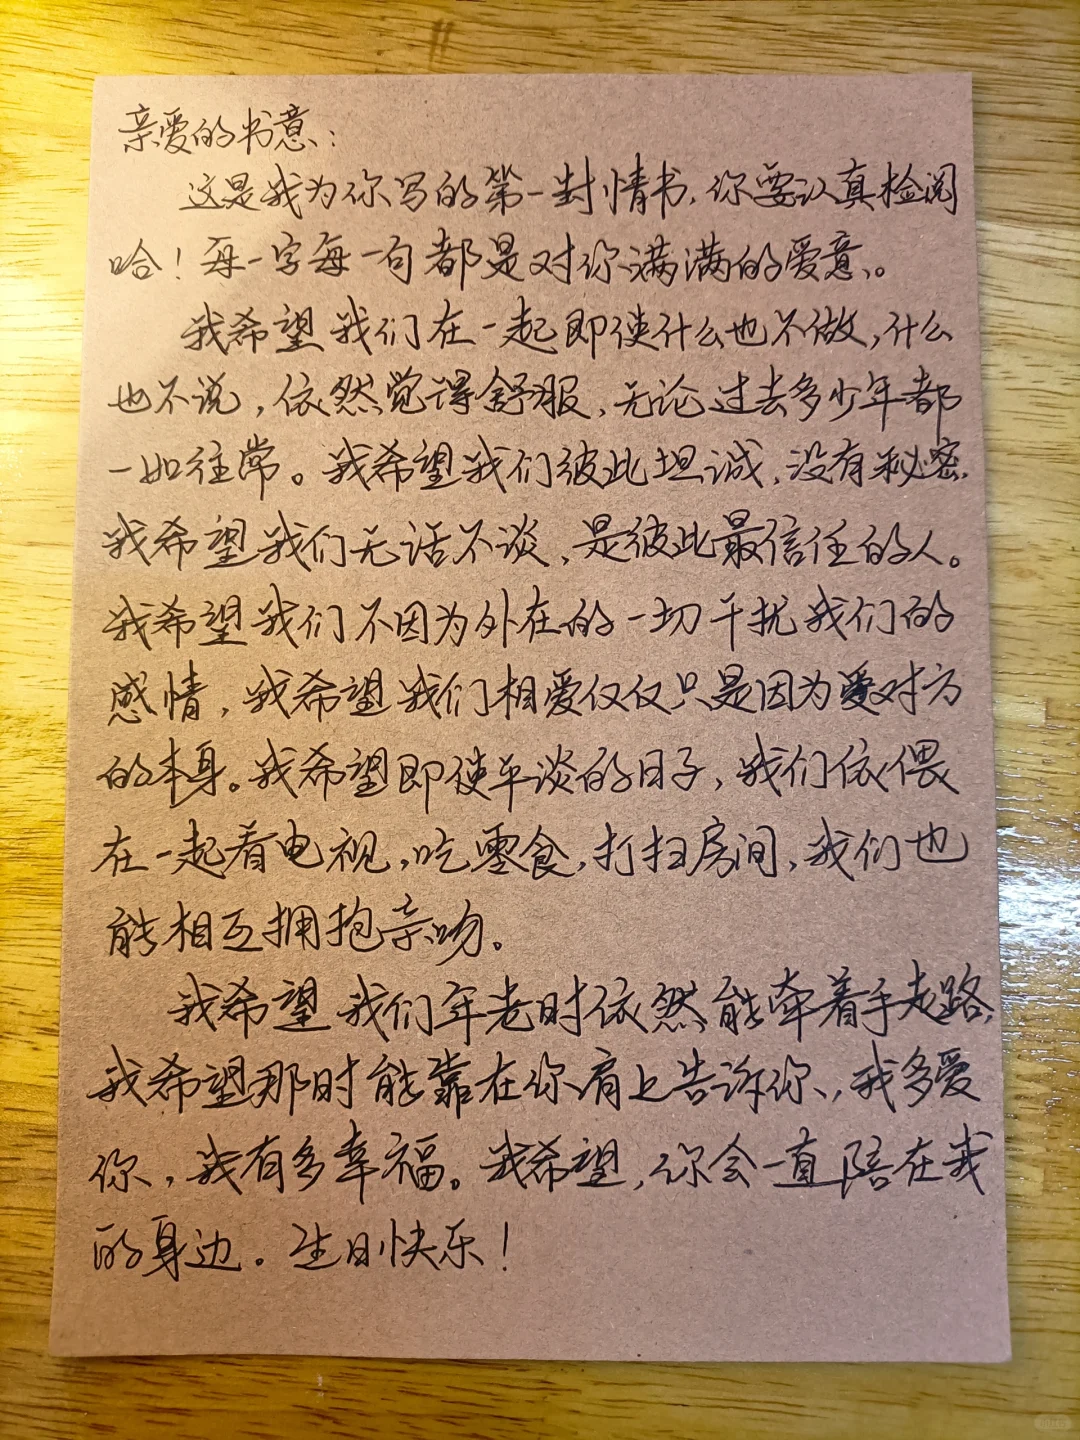 亲爱的书意：
这是我为你写的第一封情书，你要认真检阅
哈！每一字每一句都是对你满满的爱意。
我希望我们在一起即使什么也不做，什么
也不说，依然觉得舒服，无论过去多少年都
一如往常。我希望我们彼此坦诚，没有秘密，
我希望我们无话不谈，是彼此最信任的人。
我希望我们不因为外在的一切干扰我们的
感情，我希望我们相爱仅仅只是因为爱对方
的本身。我希望即使平淡的日子，我们依偎
在一起看电视，吃零食，打扫房间，我们也
能相互拥抱亲吻。
我希望我们年老时依然能牵着手走路，
我希望那时能靠在你肩上告诉你，我多爱
你，我有多幸福。我希望，你会一直陪在我
的身边。生日快乐！
小红书